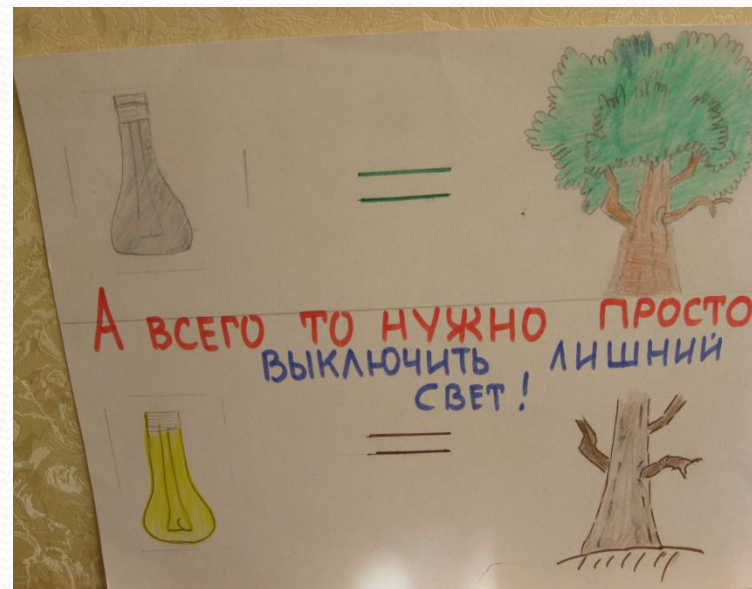 А ВСЕГО ТО НУЖНО ПРОСТО
ВЫКЛЮЧИТЬ ЛИШНИЙ
СВЕТ!